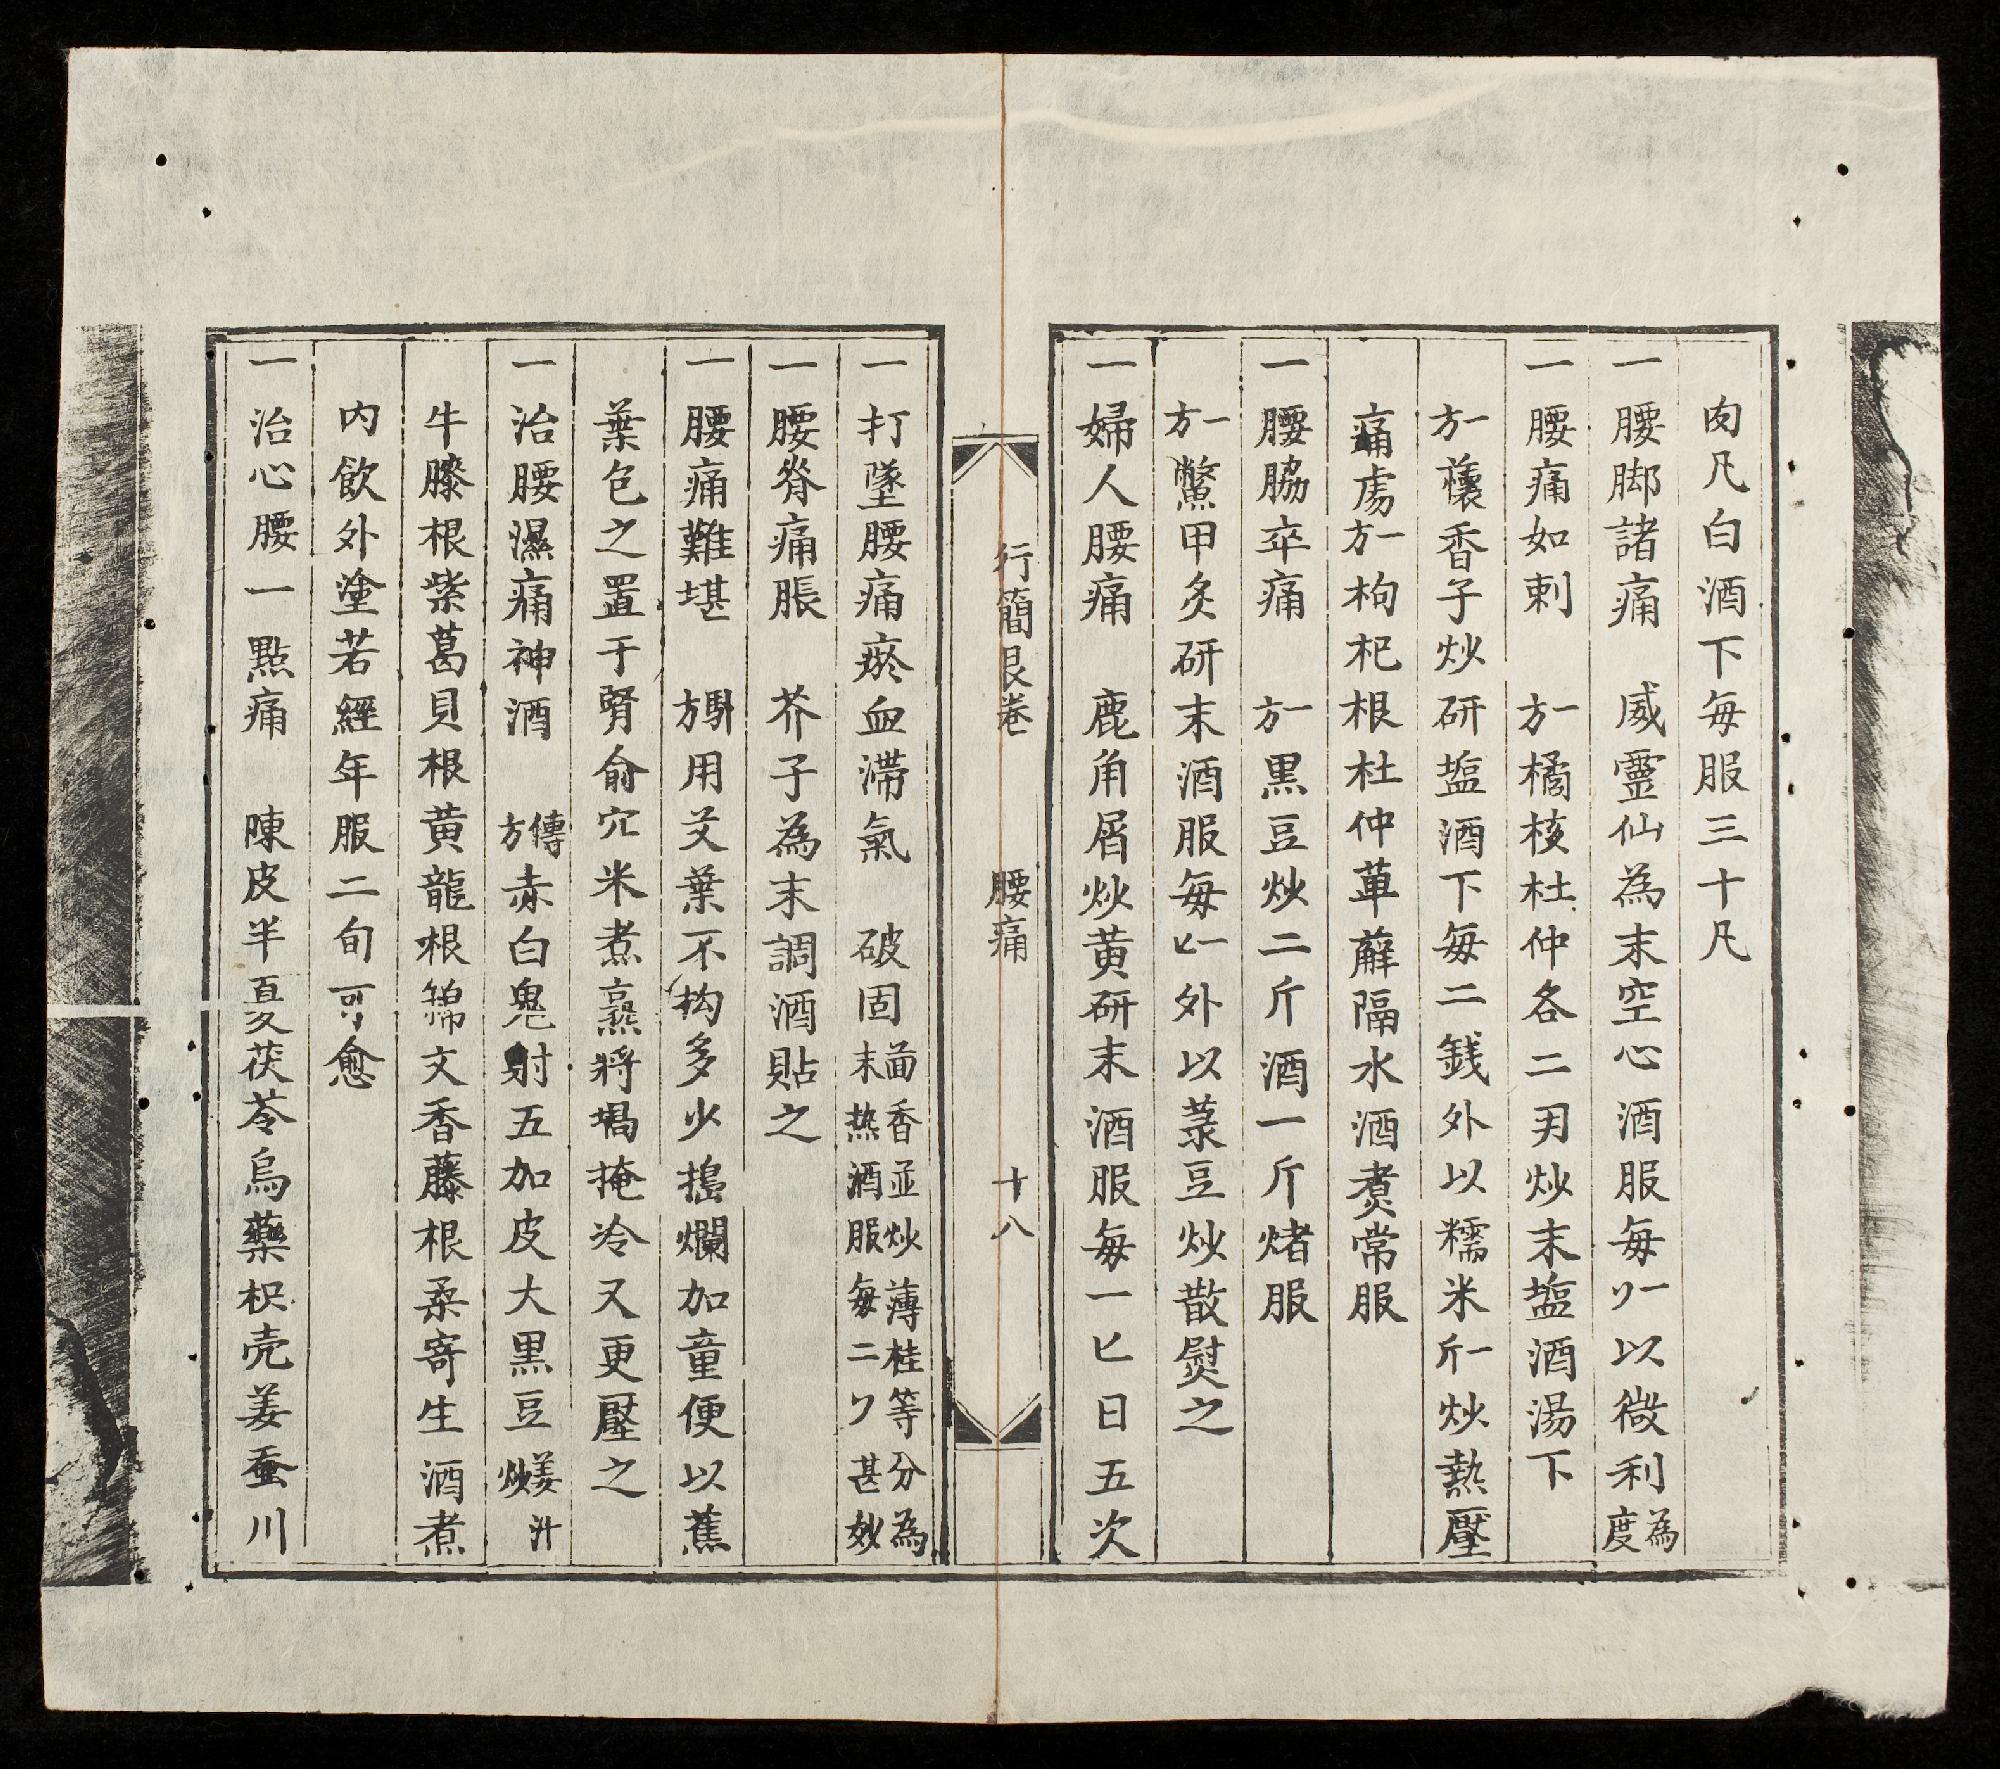 肉凡白酒下每服三十凡
一腰脚諸痛 威靈仙為末空心酒服每一以微利為度
一腰痛如刺 一方橘核杜仲各二刃炒末塩酒湯下
一方蘹香子炒研塩酒下每二銭外以糯米一斤炒熱壓
痛處一方枸杞根杜仲萆薢隔水酒煑常服
一腰脇卒痛 一方黒豆炒二斤酒一斤𤋮服
一方鱉甲炙研末酒服每一匕外以菉豆炒散熨之
一婦人腰痛 鹿角屑炒黄研末酒服每一匕日五次
行簡艮卷 腰痛 十八
一打墜腰痛瘀血滞氣 破固茴香並炒薄桂等分為末热酒服每二甚妙
一腰脊痛脹 芥子為末調酒貼之
一腰痛難堪 用艾葉不构多少搗爛加童便以蕉
葉包之置于腎俞穴米煮熹將堝掩冷又更壓之
一治腰濕痛神酒 傳方赤白鬼射五加皮大黒豆炒
牛膝根紫葛貝根黄龍根錦文香藤根桑寄生酒煮
内飲外塗若經年服二旬可愈
一治心腰一點痛 陳皮半夏茯苓烏藥枳壳姜蚕川